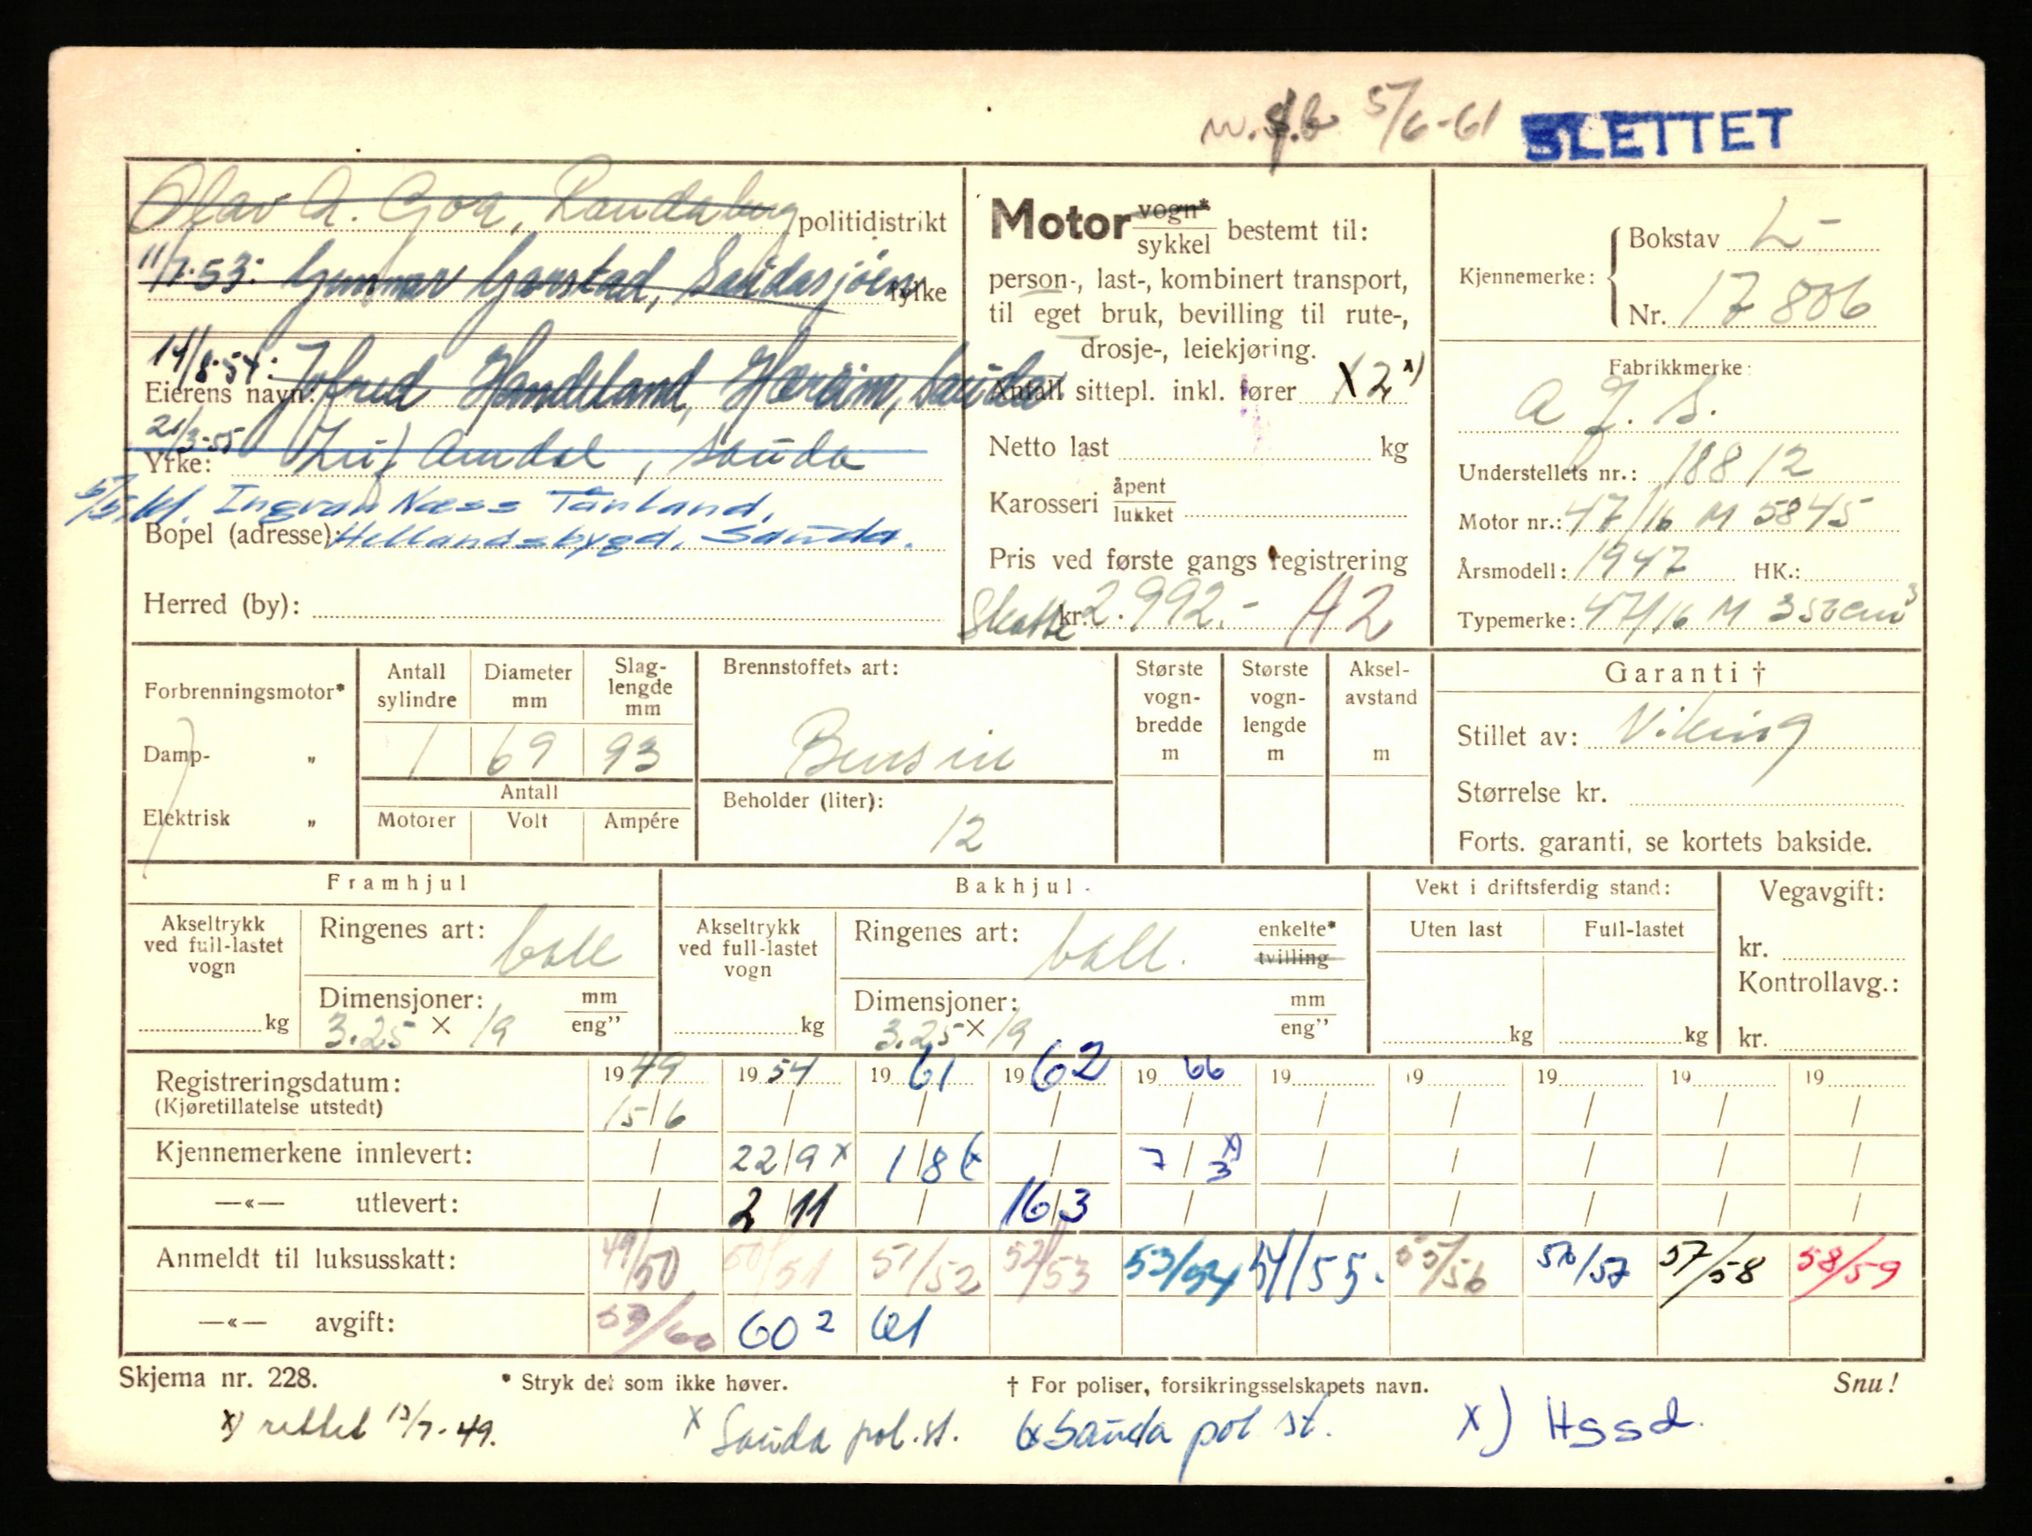 5/6-61 SLETTET
Olav A. Goa, Randaberg politidistrikt
11/7.53: Gunnar Gorstad, Saudasjøen fylke
14/8-54: Handeland, Hæreim, Sauda
Eierens navn:
21/3-55 Leif Amdal, Sauda
Yrke:
Ingvar Næss Tånland,
Bopel (adresse): Hellandsbygd, Sauda.
Herred (by):
Motor vogn* sykkel bestemt til:
person-, last-, kombinert transport,
til eget bruk, bevilling til rute-,
drosje-, leiekjøring.
Antall sittepl. inkl. fører 2 x)
Netto last kg
Karosseri åpent lukket
Pris ved første gangs registrering
Skatte kr. 2992.- A2
Kjennemerke: Bokstav L-
Nr. 17806
Fabrikkmerke:
A J. S.
Understellets nr.: 18812
Motor nr.: 47/16 M 5845
Årsmodell: 1947 HK.:
Typemerke: 47/16 M 350 cm3
Forbrenningsmotor*
Damp- "
Elektrisk "
Antall sylindre Diameter mm Slag-lengde mm
1 69 93
Antall
Motorer Volt Ampére
Brennstoffets art:
Bensin
Beholder (liter):
12
Største vogn-bredde m Største vogn-lengde m Aksel-avstand m
Garanti †
Stillet av: Viking
Størrelse kr.
Forts. garanti, se kortets bakside.
Framhjul
Akseltrykk ved full-lastet vogn
kg
Ringenes art: ball
Dimensjoner: mm eng"
3.25 x 19
Bakhjul
Akseltrykk ved full-lastet vogn
kg
Ringenes art: ball. enkelte* tvilling
Dimensjoner: mm eng"
3.25 x 19
Vekt i driftsferdig stand:
Uten last Full-lastet
kg kg
Vegavgift:
kr.
Kontrollavg.:
kr.
Registreringsdatum: 1949 1954 1961 1962 1966 19 19 19 19 19
(Kjøretillatelse utstedt) 15/6 / / / / / / / / /
Kjennemerkene innlevert: / 22/9 x 1/8 (x / 7/3 x) / / / / /
—«— utlevert: / 2/11 / 16/3 / / / / / /
Anmeldt til luksusskatt: 49/50 50/51 51/52 52/53 53/54 54/55. 55/56 56/57 57/58 58/59
—«— avgift: 59/60 60 2 61
Skjema nr. 228. * Stryk det som ikke høver. † For poliser, forsikringsselskapets navn. Snu!
x) rettet 13/7-49. x Sauda pol.st. (x Sauda pol st. x) Hssd.